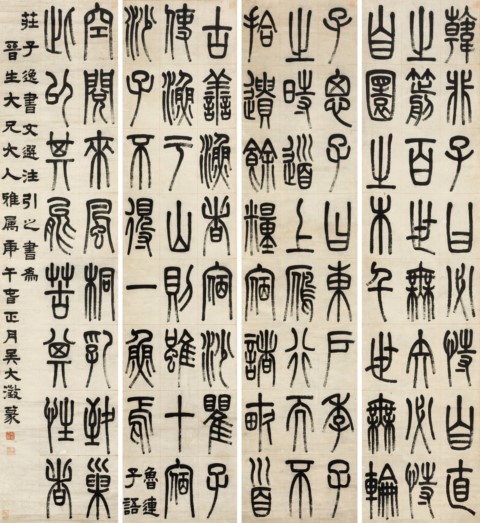 韓非子曰必恃自直
之箭百世無矢必恃
自圜之木千世無輪
子思子曰東戶季子
之時道上鴈行而不
拾遺餘糧宿諸畝首
古善漁者宿沙瞿子
使漁于山則雖十宿
沙子不得一魚焉
魯連
子語
空閱來風桐乳致巢
此以其能苦其性者
莊子逸書文選注引之書為
晉生大兄大人雅屬庚午春正月吳大澂篆